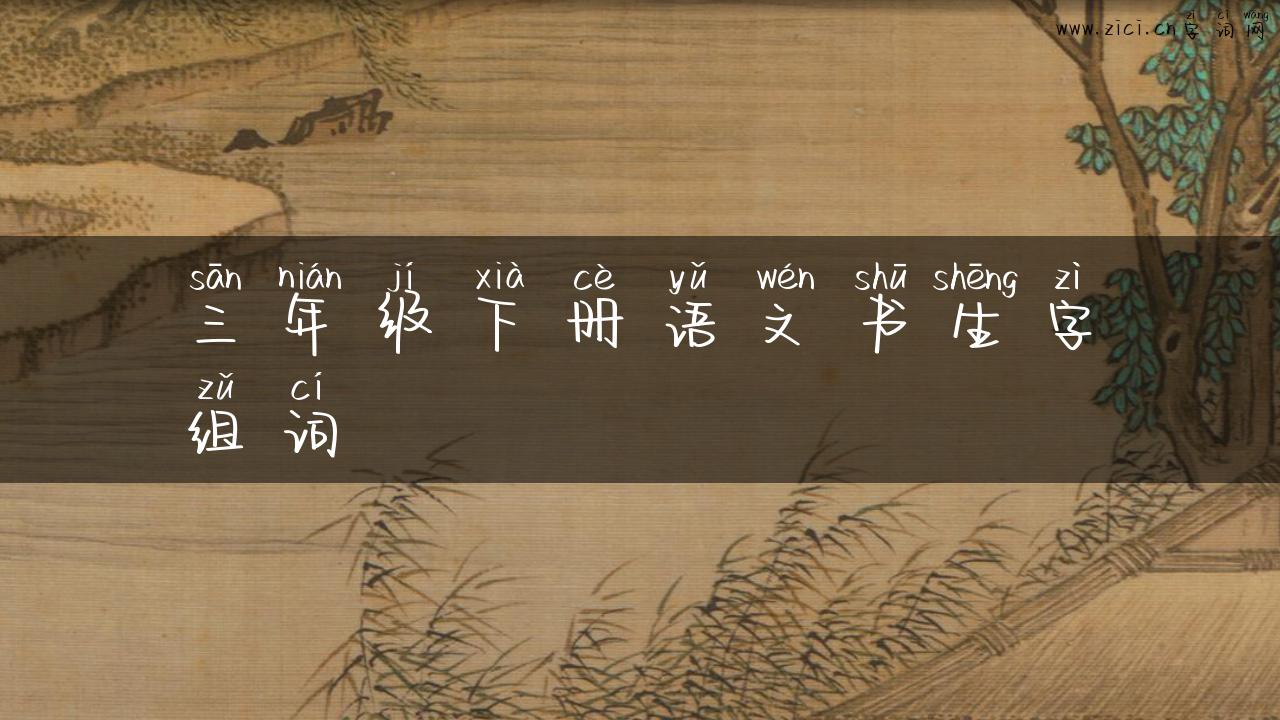 zì cí wǎng
www.zici.cn字词网
sān nián jí xià cè yǔ wén shū shēng zì
三年级下册语文书生字
zǔ cí
组词